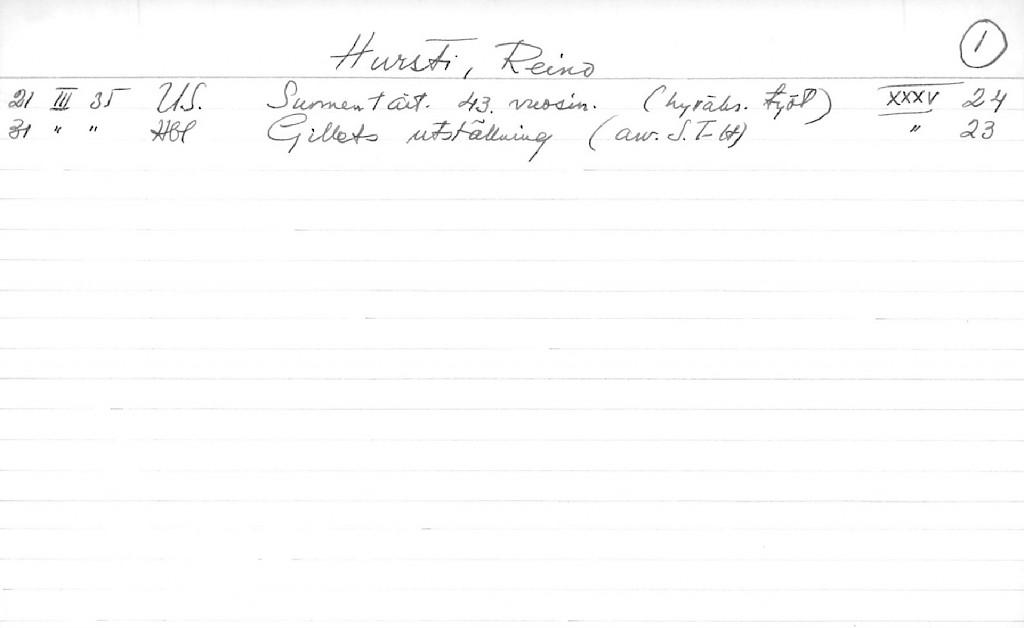 Hursti, Reino
1
21 III 35 U.S. Suomen tait. 43. vuosin. ( ) XXXV 24
31 " " Hbl Gillets utställning (anv. S. T-lt) " 23